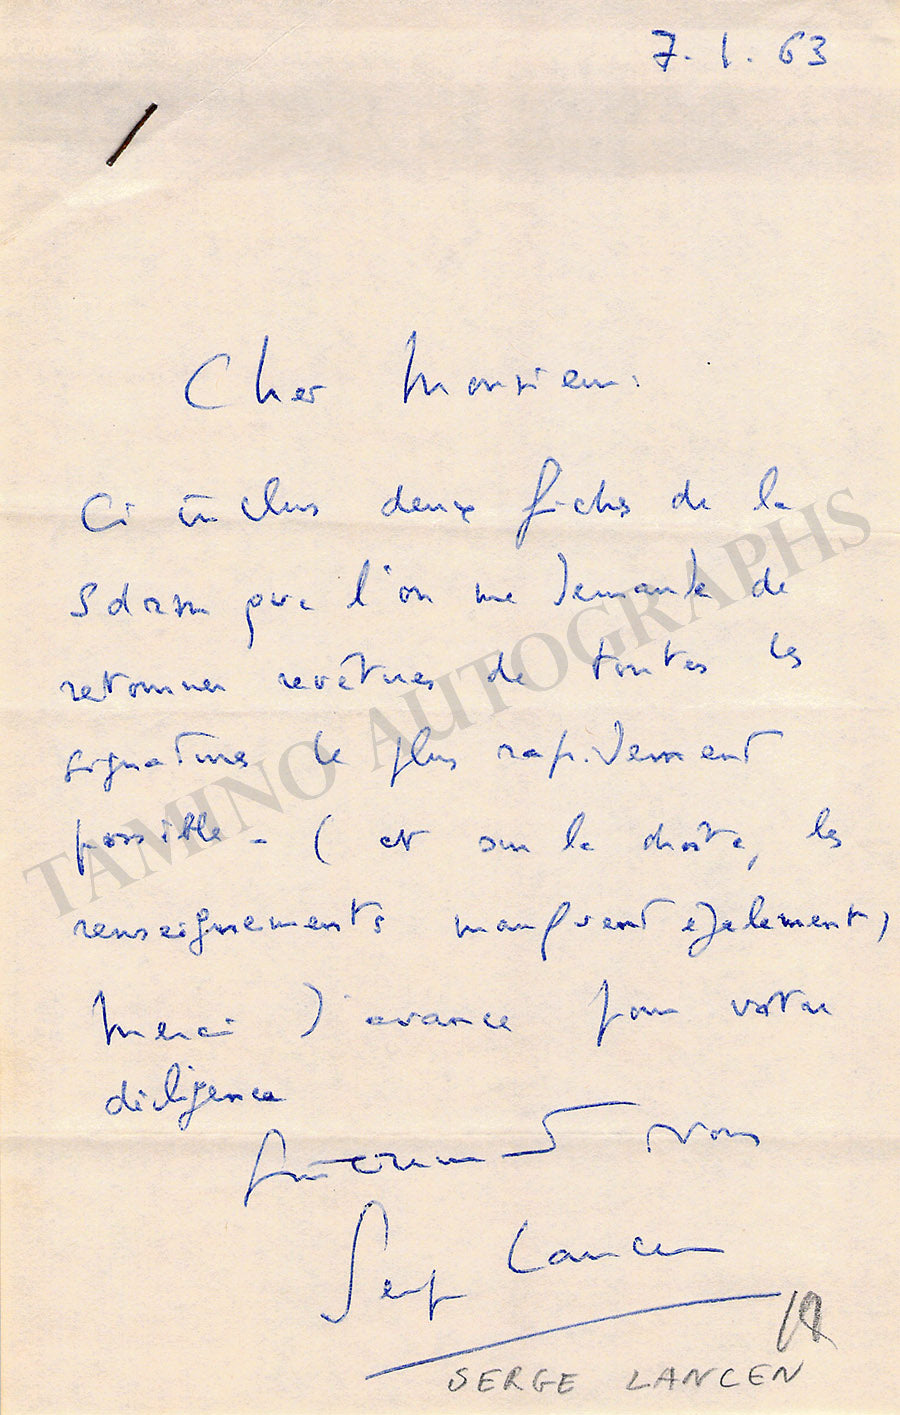 7. 1. 63
Cher Monsieur.
Ci inclus deux fiches de la
Sdrm que l'on me demande de
retourner revêtues de toutes les
signatures le plus rapidement
possible - ( et sur la droite, les
renseignements manquent également)
Merci d'avance pour votre
diligence
Sincèrement à vous
Serge Lancen
SERGE LANCEN
TAMINO AUTOGRAPHS